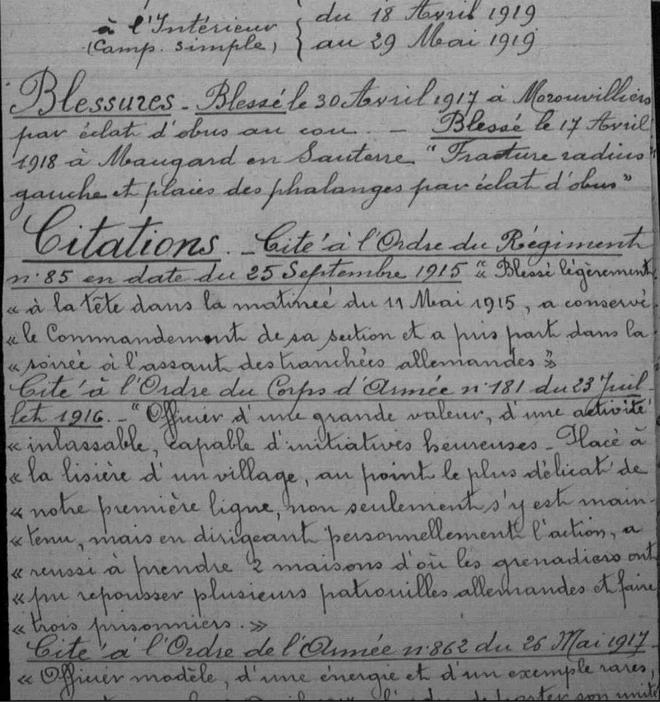 à l'Intérieur { du 18 Avril 1919
(Camp. simple) { au 29 Mai 1919
Blessures - Blessé le 30 Avril 1917 à Moronvilliers
par éclat d'obus au cou. — Blessé le 17 Avril
1918 à Maugard en Santerre "Fracture radius
gauche et plaies des phalanges par éclat d'obus"
Citations. - Cité à l'Ordre du Régiment
n° 85 en date du 25 Septembre 1915 « Blessé légèrement
« à la tête dans la matineé du 11 Mai 1915, a conservé
« le Commandement de sa section et a pris part dans la
« soirée à l'assaut des tranchées allemandes »
Cité à l'Ordre du Corps d'Armée n° 181 du 23 Juil-
let 1916. - "Officier d'une grande valeur, d'une activité
« inlassable, capable d'initiatives heureuses - Placé à
« la lisière d'un village, au point le plus délicat de
« notre première ligne, non seulement s'y est main-
« tenu, mais en dirigeant personnellement l'action, a
« reussi à prendre 2 maisons d'où les grenadiers ont
« pu repousser plusieurs patrouilles allemandes et faire
« trois prisonniers. »
Cité à l'Ordre de l'Armée n° 862 du 26 Mai 1917
« Officier modèle, d'une énergie et d'un exemple rares,
son unité